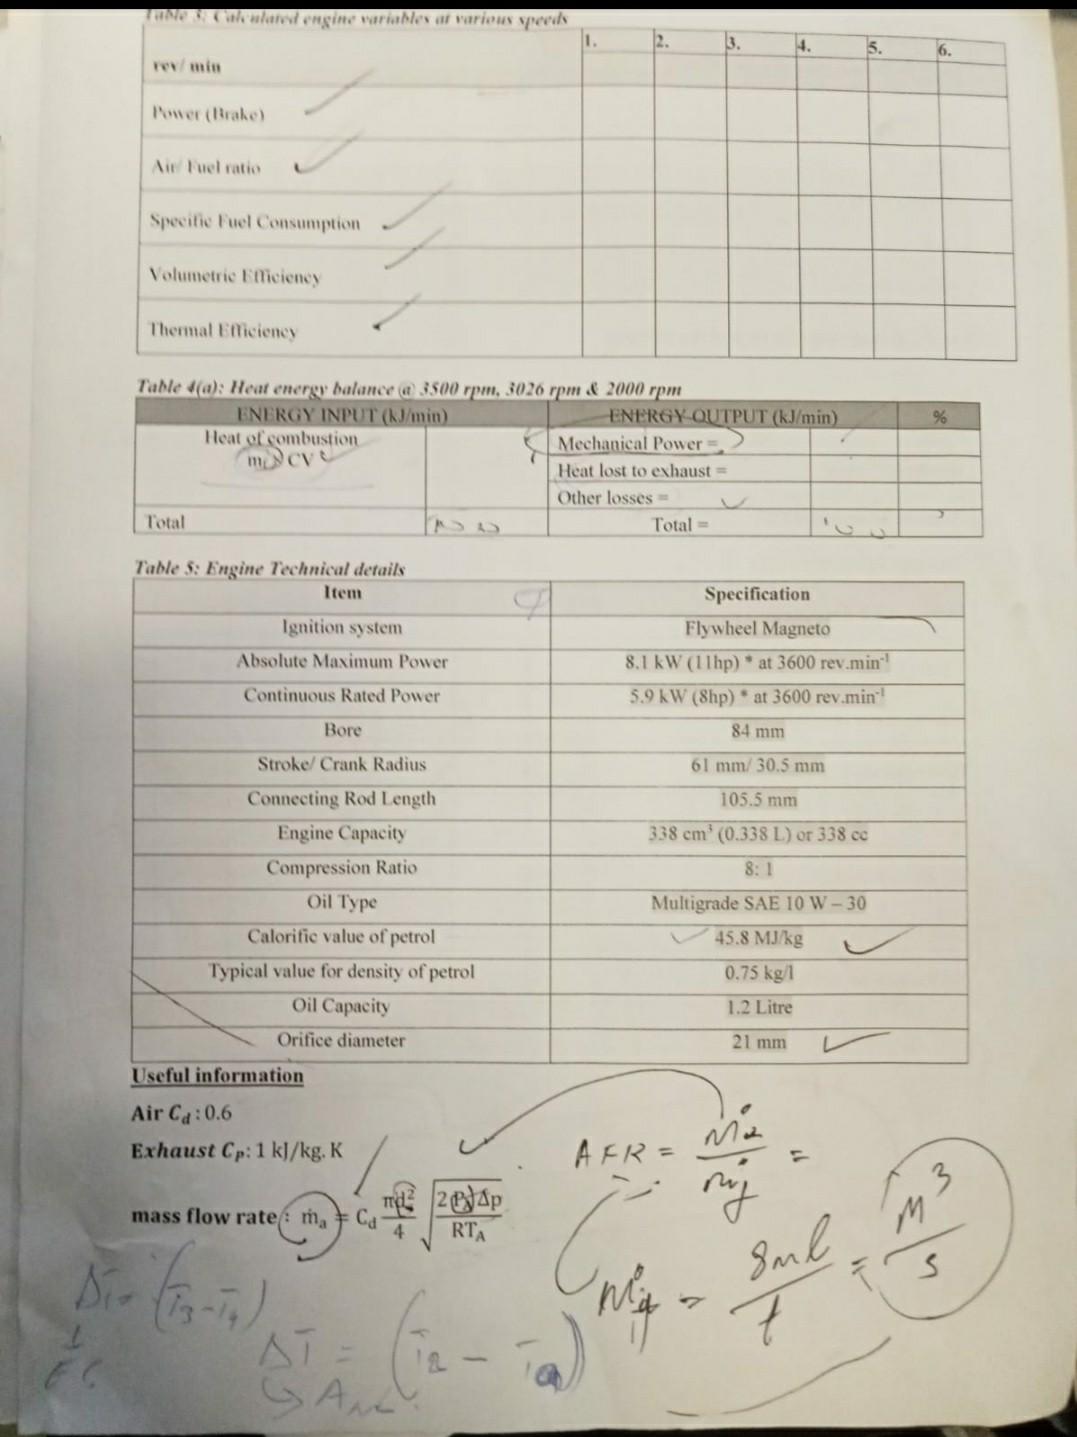 Table 3: Calculated engine variables at various speeds
1. 2. 3. 4. 5. 6.
rev/ min
Power (Brake)
Air/ Fuel ratio
Specific Fuel Consumption
Volumetric Efficiency
Thermal Efficiency
Table 4(a): Heat energy balance @ 3500 rpm, 3026 rpm & 2000 rpm
ENERGY INPUT (kJ/min) ENERGY OUTPUT (kJ/min) %
Heat of combustion Mechanical Power =
CV
Heat lost to exhaust =
Other losses =
Total Total =
Table 5: Engine Technical details
Item Specification
Ignition system Flywheel Magneto
Absolute Maximum Power 8.1 kW (11hp) * at 3600 rev.min⁻¹
Continuous Rated Power 5.9 kW (8hp) * at 3600 rev.min⁻¹
Bore 84 mm
Stroke/ Crank Radius 61 mm/ 30.5 mm
Connecting Rod Length 105.5 mm
Engine Capacity 338 cm³ (0.338 L) or 338 cc
Compression Ratio 8: 1
Oil Type Multigrade SAE 10 W – 30
Calorific value of petrol 45.8 MJ/kg
Typical value for density of petrol 0.75 kg/l
Oil Capacity 1.2 Litre
Orifice diameter 21 mm
Useful information
Air C_d : 0.6
Exhaust C_P: 1 kJ/kg. K
AFR = ṁa / ṁf =
mass flow rate : ṁ_a = C_d πd²/4 √(2P_AΔp / RT_A)
ṁf = 8ml / t = m³ / s
ΔT = (T3 - T4)
ΔT = (T2 - Ta)